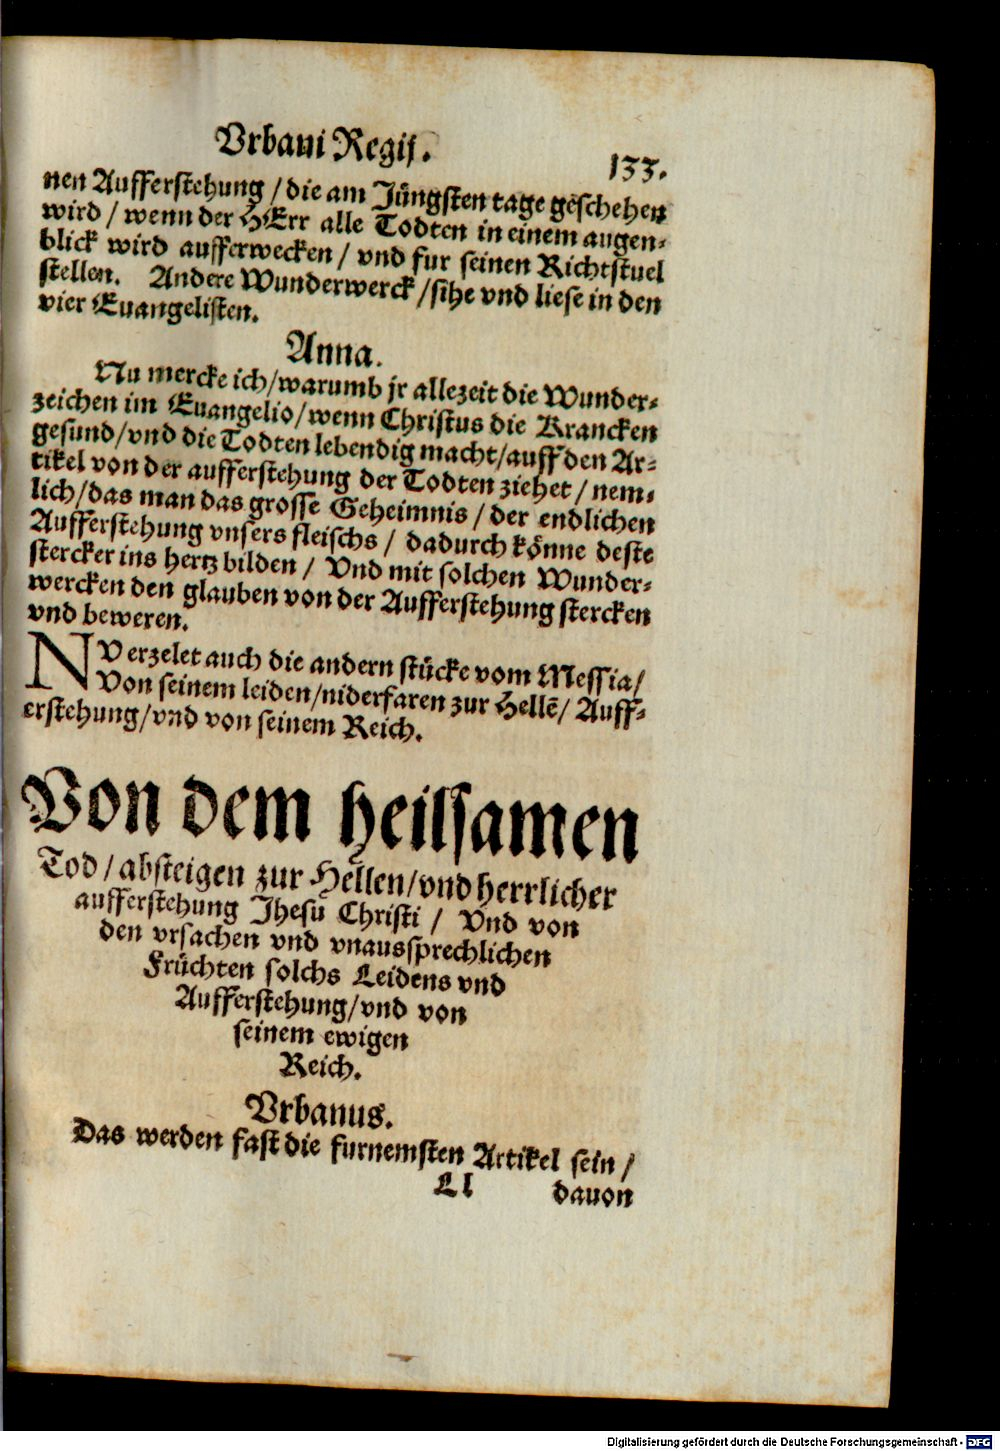 Vrbani Regij.
133.
nen Aufferstehung / die am Jüngsten tage geschehen
wird / wenn der HErr alle Todten in einem augen-
blick wird aufferwecken / vnd fur seinen Richtstuel
stellen. Andere Wunderwerck / sihe vnd liese in den
vier Euangelisten.
Anna.
Nu mercke ich / warumb jr allezeit die Wunder-
zeichen im Euangelio / wenn Christus die Krancken
gesund / vnd die Todten lebendig macht / auff den Ar-
tikel von der aufferstehung der Todten ziehet / nem-
lich / das man das grosse Geheimnis / der endlichen
Aufferstehung vnsers fleischs / dadurch könne deste
stercker ins hertz bilden / Vnd mit solchen Wunder-
wercken den glauben von der Aufferstehung stercken
vnd beweren.
NV erzelet auch die andern stücke vom Messia /
Von seinem leiden / niderfaren zur Hellē / Auff-
erstehung / vnd von seinem Reich.
Von dem heilsamen
Tod / absteigen zur Hellen / vnd herrlicher
aufferstehung Jhesu Christi / Vnd von
den vrsachen vnd vnaussprechlichen
Früchten solchs Leidens vnd
Aufferstehung / vnd von
seinem ewigen
Reich.
Vrbanus.
Das werden fast die furnemsten Artikel sein /
Ll davon
Digitalisierung gefördert durch die Deutsche Forschungsgemeinschaft - DFG